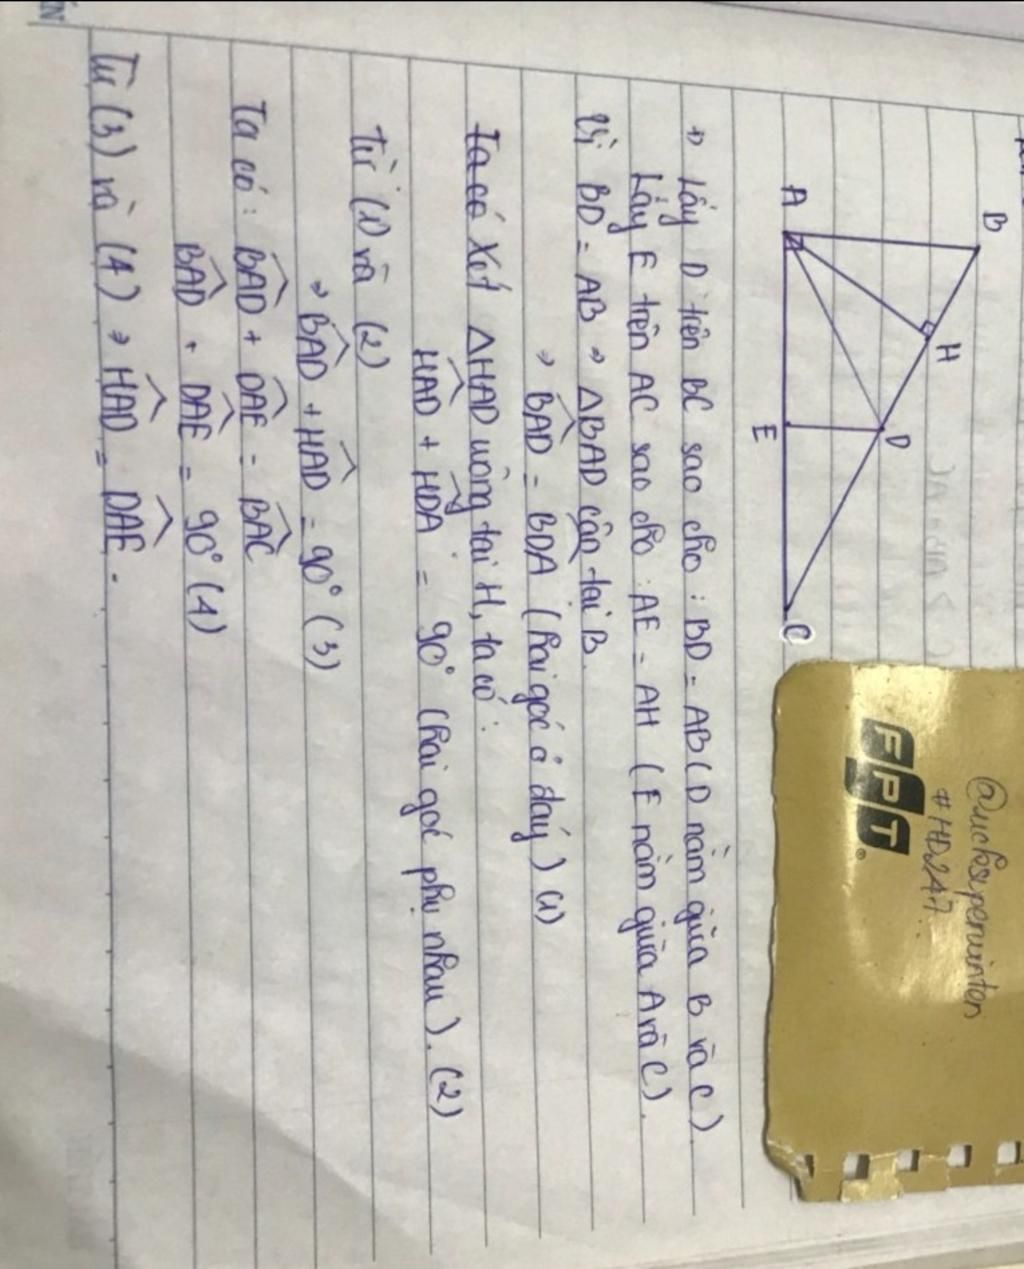 B
H
D
A
E
C
@nicksuperwinton
#HD247
FPT
→ Lấy D trên BC sao cho : BD = AB ( D nằm giữa B và C )
Lấy E trên AC sao cho : AE = AH ( E nằm giữa A và C ).
Vì BD = AB → ΔBAD cân tại B.
→ BAD = BDA ( hai góc ở đáy ) (1)
Ta có Xét ΔHAD vuông tại H, ta có :
HAD + HDA = 90° ( hai góc phụ nhau ). (2)
Từ (1) và (2)
→ BAD + HAD = 90° (3)
Ta có : BAD + DAE = BAC
BAD + DAE = 90° (4)
Từ (3) và (4) → HAD = DAE .